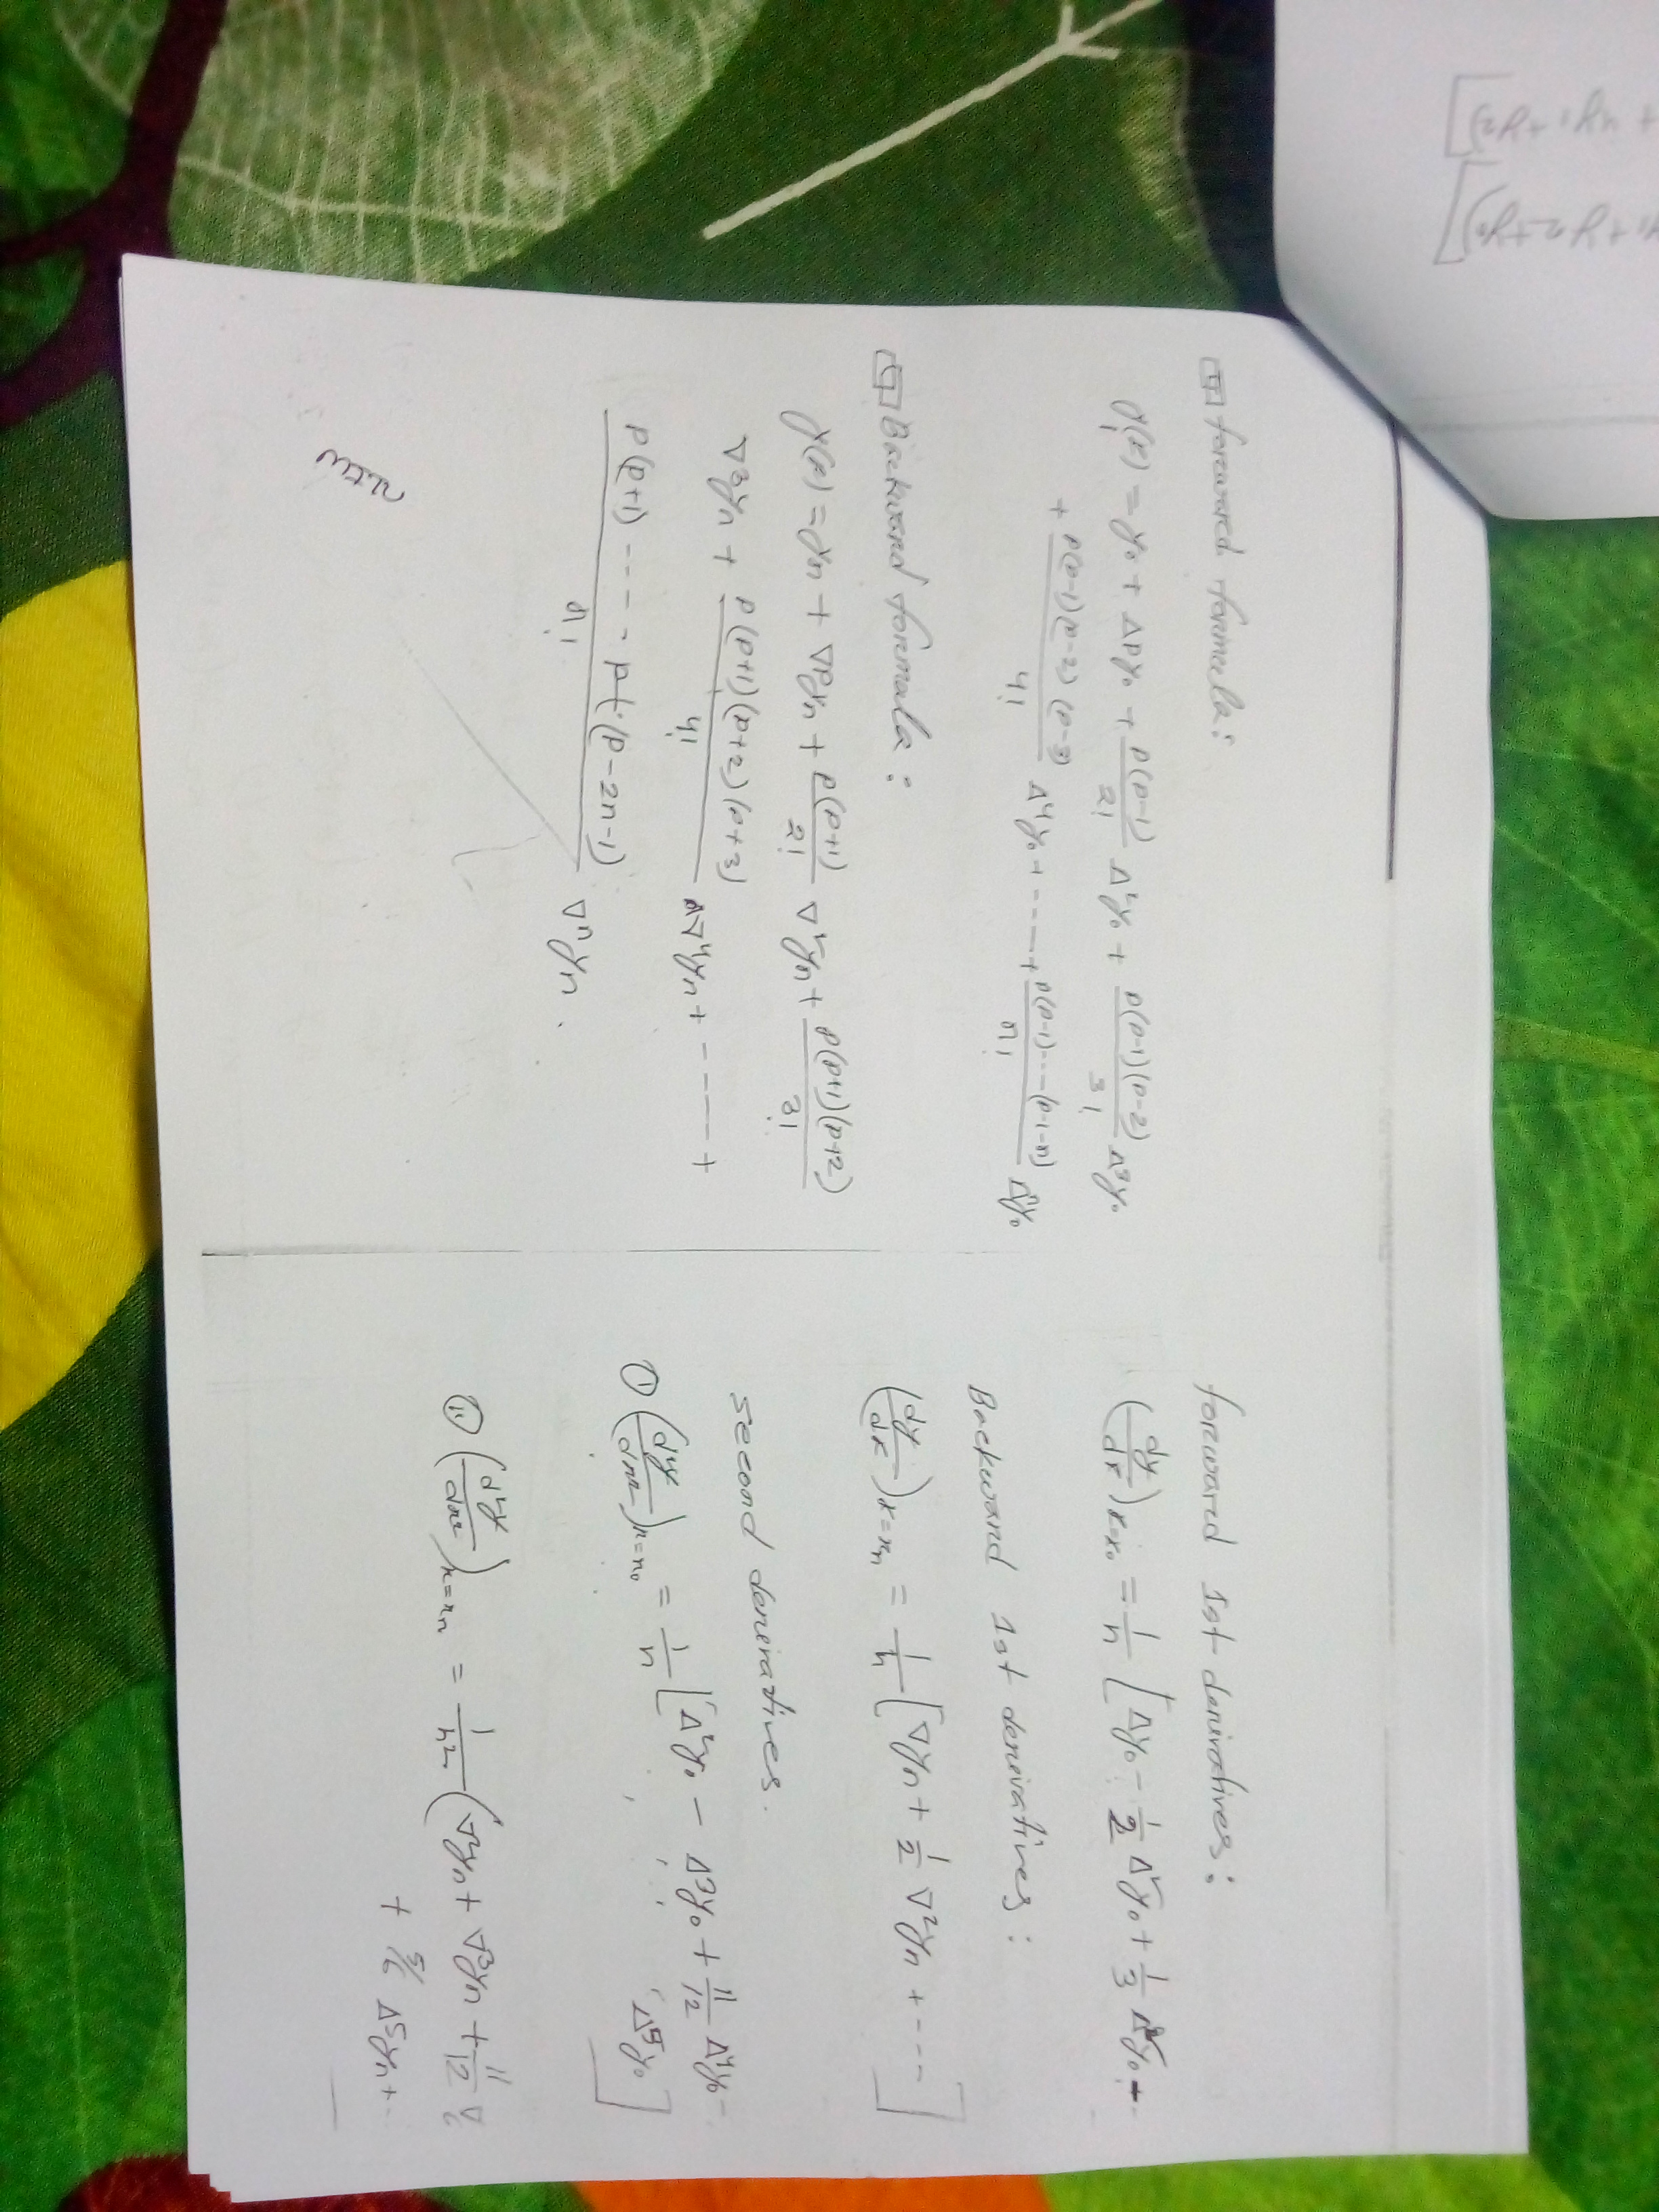 forward formula:
y(p) = y₀ + Δpy₀ + p(p-1)/2! Δ²y₀ + p(p-1)(p-2)/3! Δ³y₀
+ p(p-1)(p-2)(p-3)/4! Δ⁴y₀ + ----- + p(p-1)---(p-1-n)/n! Δⁿy₀
Backward formula:
y(p) = yn + ∇pyn + p(p+1)/2! ∇²yn + p(p+1)(p+2)/3!
∇³yn + p(p+1)(p+2)(p+3)/4! ∇⁴yn + ------ +
p(p+1) ---- p+(p-2n-1)/n! ∇ⁿyn.
forward 1st derivatives:
(dy/dx)x=x₀ = 1/h [Δy₀ - 1/2 Δ²y₀ + 1/3 Δ³y₀ +--
Backward 1st derivatives:
(dy/dx)x=xn = 1/h [∇yn + 1/2 ∇²yn + ----]
second derivatives.
① (d²y/dx²)x=x₀ = 1/h [Δ²y₀ - Δ³y₀ + 11/12 Δ⁴y₀ -
Δ⁵y₀]
② (d²y/dx²)x=xn = 1/h² (∇²yn + ∇³yn + 11/12 ∇
+ 5/6 Δ⁵yn + ..